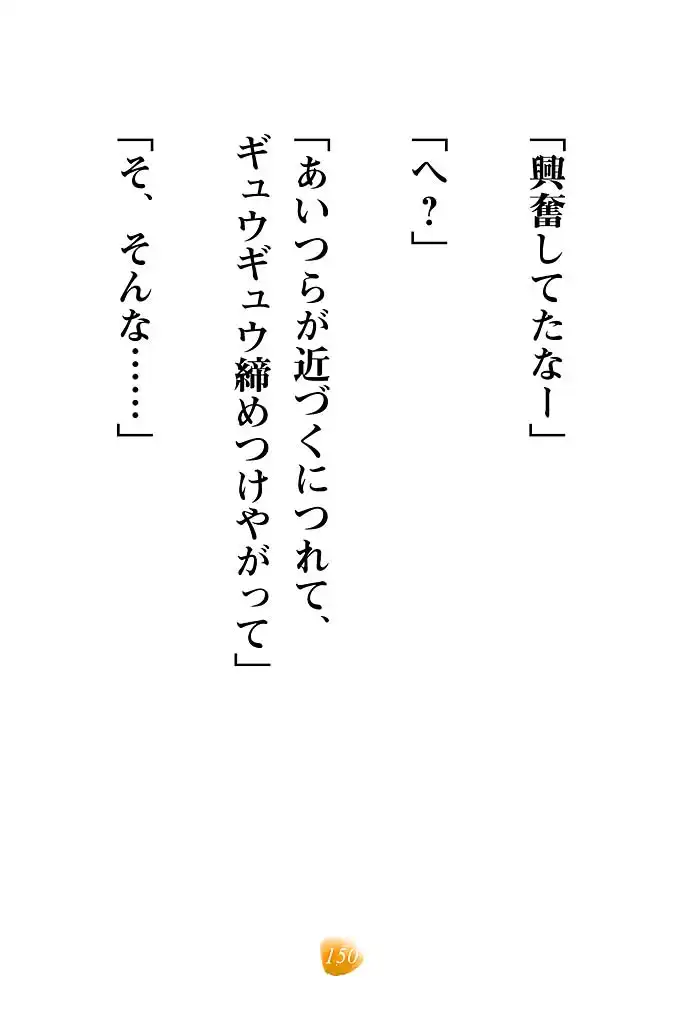 「興奮してたなー」
「へ？」
「あいつらが近づくにつれて、
ギュウギュウ締めつけやがって」
「そ、そんな……」
150